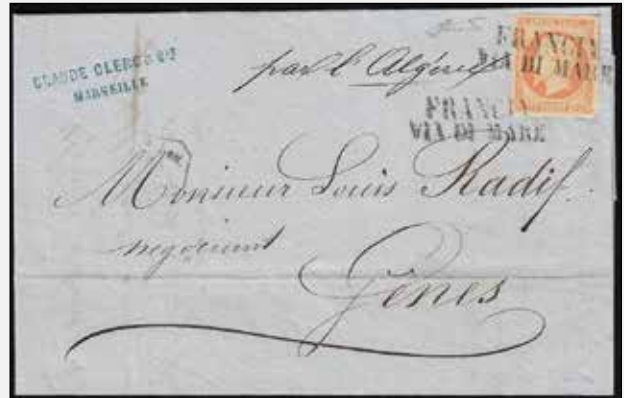 CLAUDE CLERC & Cie
MARSEILLE
par l'Algérie
FRANCIA
VIA DI MARE
FRANCIA
VIA DI MARE
Monsieur Louis Radif
negociant
Gênes